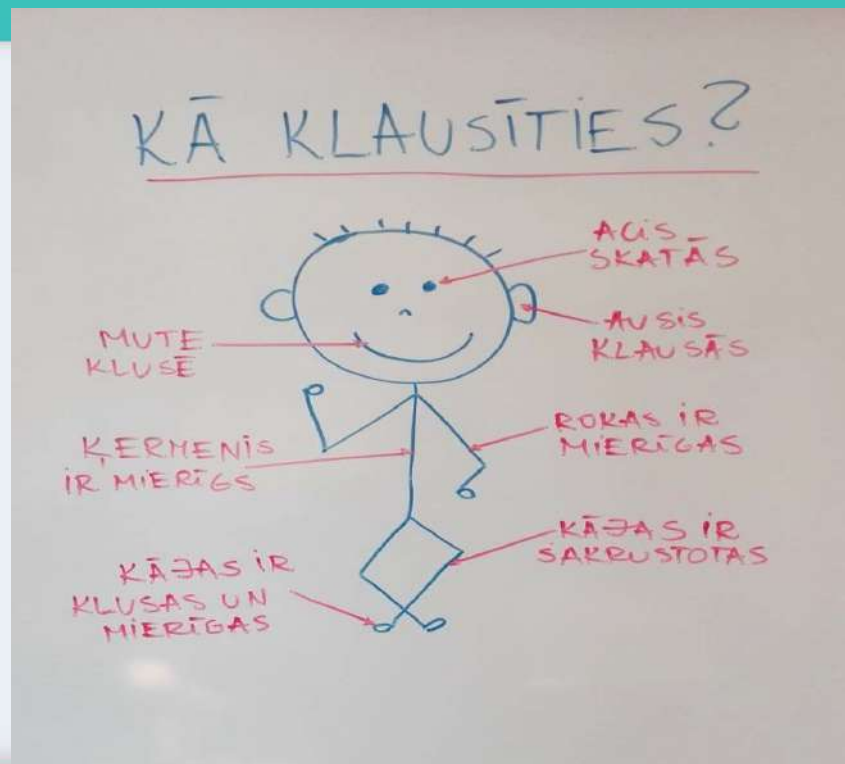 KĀ KLAUSĪTIES?
ACIS
SKATĀS
AUSIS
KLAUSĀS
MUTE
KLUSĒ
ĶERMENIS
IR MIERĪGS
ROKAS IR
MIERĪGAS
KĀJAS IR
SAKRUSTOTAS
KĀJAS IR
KLUSAS UN
MIERĪGAS